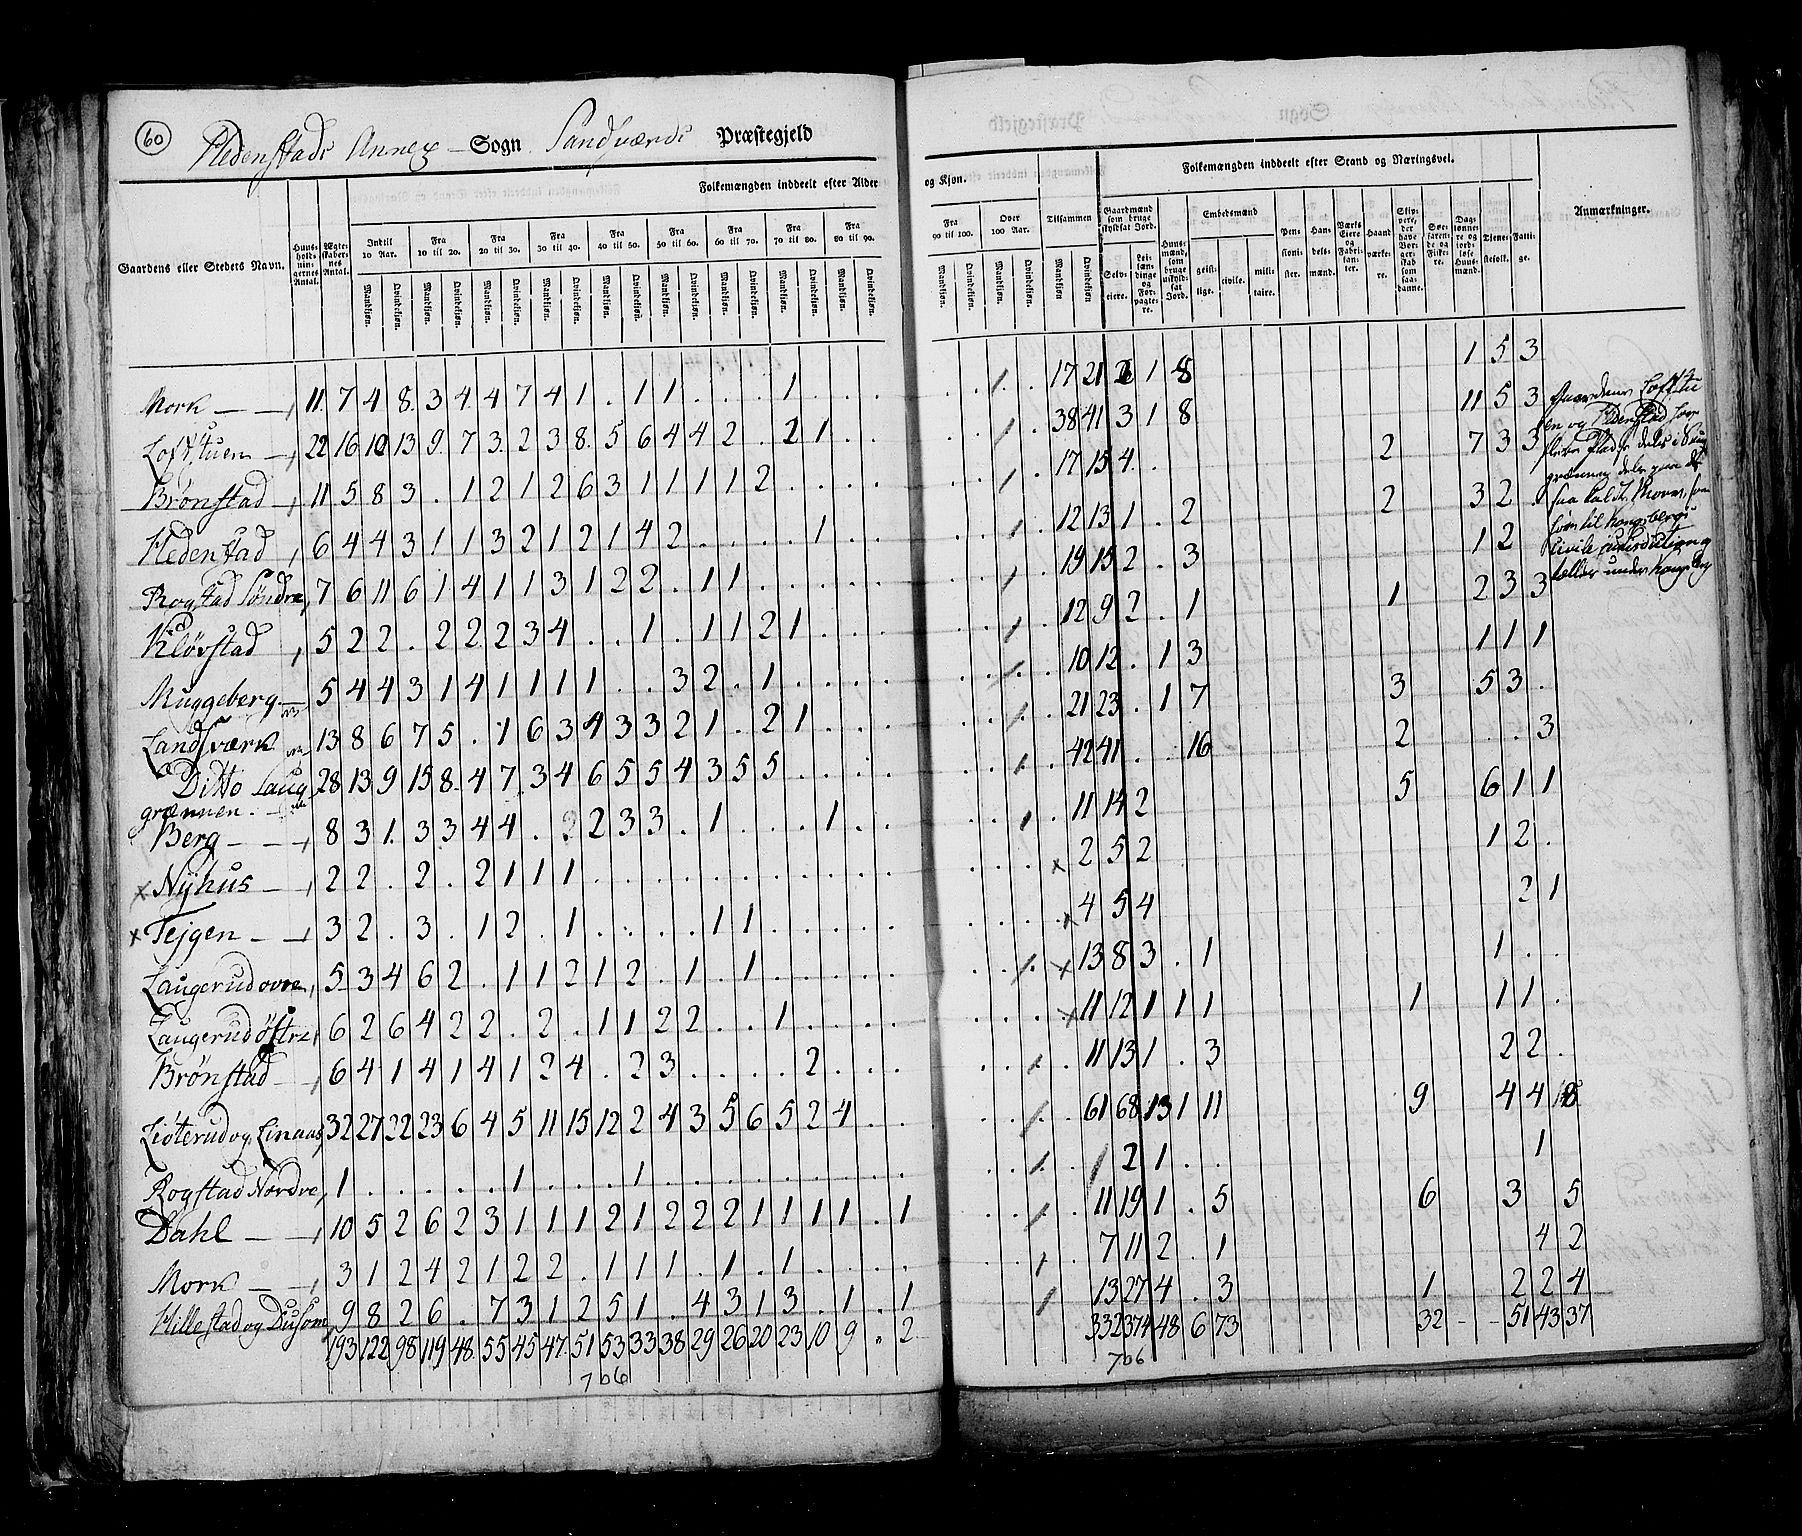 60 Hedenstads Annex Sogn Sandsværds Præstegjeld
Folkemængden inddeelt efter Alder
og Kjøn.
Folkemængden inddeelt efter Stand og Næringsvei.
Gaardens eller Stedets Navn.
Huusholdningernes Antal.
Ægteskabernes Antal.
Indtil 10 Aar.
Fra 10 til 20.
Fra 20 til 30.
Fra 30 til 40.
Fra 40 til 50.
Fra 50 til 60.
Fra 60 til 70.
Fra 70 til 80.
Fra 80 til 90.
Fra 90 til 100.
Over 100 Aar.
Tilsammen
Mandkjøn. Qvindekjøn.
Gaardmænd som bruge skyldsat Jord.
Selveiere.
Leilændinge og Forpagtere.
Huusmænd, som bruge uskyldsat Jord.
Embedsmænd
geistlige. civile. militaire.
Pensionister.
Handelsmænd.
Værks Eiere og Fabrikanter.
Haandværkere.
Skippere, der have Borgerskab som saadanne.
Søefarende og Fiskere.
Daglønnere og jordløse Huusmænd.
Tjenestefolk.
Fattige.
Anmærkninger.
Mork 11 7 4 8 3 4 4 7 4 1 . 1 1 . . . 1 . . . 17 21 2 1 8 1 5 3
Loftstuen 22 16 10 13 9 7 3 2 3 8 5 6 4 4 2 . 2 1 . . 38 41 3 1 8 11 5 3
Brønstad 11 5 8 3 . 1 2 1 2 6 3 1 1 1 1 2 . . . . 17 15 4 . 2 7 3 3
Hedenstad 6 4 4 3 1 1 3 2 1 2 1 4 2 . . . . 1 . . 12 13 1 . 2 2 3 2 .
Rogstad Søndre 7 6 11 6 1 4 1 1 3 1 2 2 . 1 1 . . . . . 19 15 2 . 3 1 2
Kløvstad 5 2 2 . 2 2 2 3 4 . . 1 . 1 1 2 1 . . . 12 9 2 . 1 1 2 3 3
Muggeberg 5 4 4 3 1 4 1 1 1 1 . . 3 2 . 1 . . . . 10 12 . 1 3 1 1 1
Landsværk 13 8 6 7 5 . 1 6 3 4 3 3 2 1 . 2 1 . . . 21 23 . 1 7 3 5 3 .
Ditto Laug 28 13 9 15 8 4 7 3 4 6 5 5 4 3 5 5 . . . . 42 41 . . 16 2 . . 3
grænnen.
Berg 8 3 1 3 3 4 4 . 3 2 3 3 . 1 . . . 1 . . 11 14 2 5 6 1 1
x Nyhus 2 2 . 2 . 2 1 1 1 . . . . . . . . . . . x 2 5 2 1 2 .
x Tejgen 3 2 . 3 . 1 2 . 1 . . . . 1 1 . . . . . x 4 5 4 2 1
Laugerud øvre 5 3 4 6 2 . 1 1 2 1 2 . 1 . 1 . . . . . x 13 8 3 . 1 1 . .
Laugerud Østre 6 2 6 4 2 2 . 2 . 1 1 2 2 . . 1 . . . . x 11 12 1 1 1 1 1 1 .
Brønstad 6 4 1 4 1 4 1 2 4 . 2 3 . . . . 2 . . . 11 13 1 . 3 2 2 .
Lióterud og Linaas 32 27 22 23 6 4 5 11 15 12 2 4 3 5 6 5 2 4 . . 61 68 13 1 11 9 4 4
Rogstad Nordre 1 . . . . . 1 . . . 1 . . . . . . . . . 1 2 1 . . 1
Dahl 10 5 2 6 2 3 1 1 1 2 1 2 2 2 1 1 1 1 . 1 11 19 1 . 5 6 3 5
Mork 3 1 2 4 2 1 2 2 . 1 1 1 . 1 . 1 . . . . 7 11 2 . 1 4 2
Hillestad og Dusom 9 8 2 6 . 7 3 1 2 5 1 . 4 3 1 3 . 1 . 1 13 27 4 . 3 1 2 2 4
193 122 98 119 48 55 45 47 51 53 33 38 29 26 20 23 10 9 " 2 332 374 48 6 73 32 - - 51 43 37
706
706
Gaardene Loftstu
en og Hedenstad
civile Jurisdiction
under Kongsberg